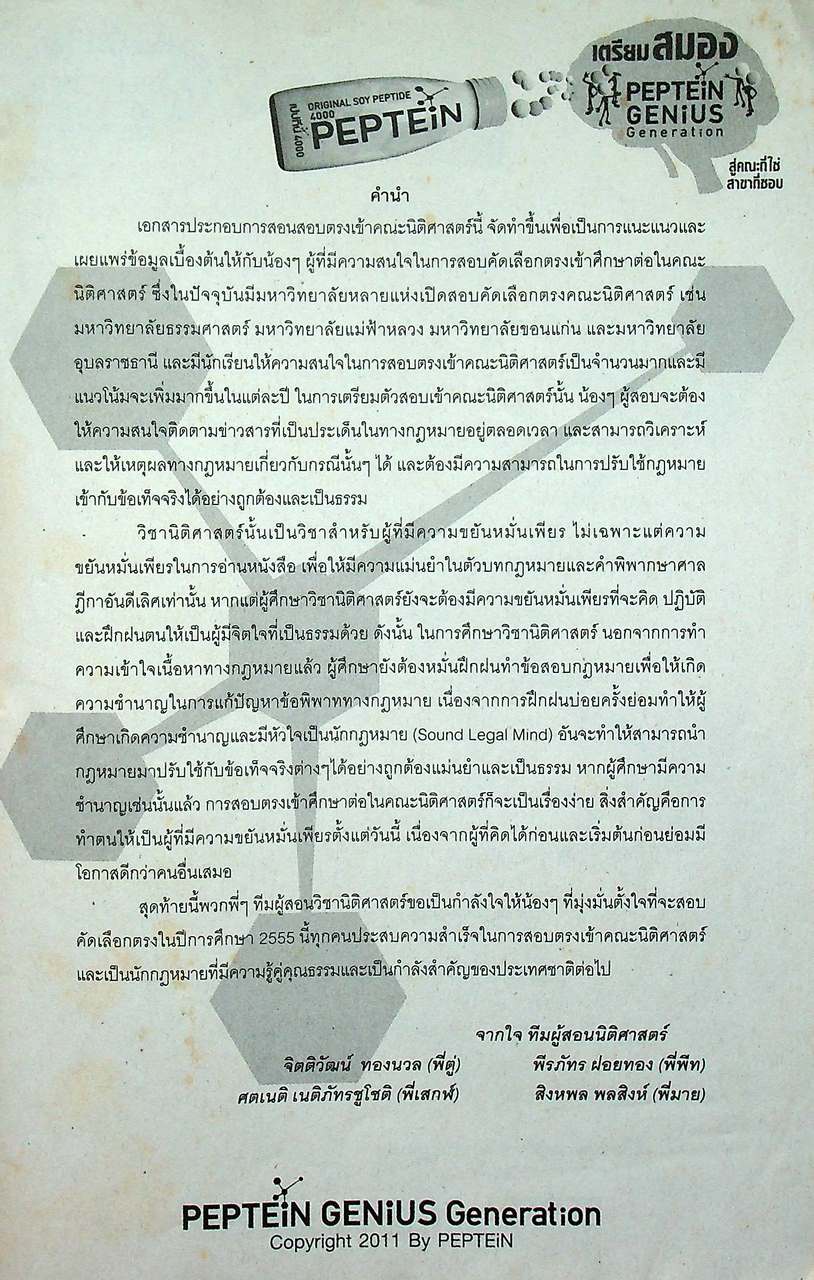 เตรียมสมอง
ORIGINAL SOY PEPTIDE
4000
PEPTEiN
เปปทีน 4000
PEPTEiN
GENiUS
Generation
สู่คณะที่ใช่
สาขาที่ชอบ
คำนำ
เอกสารประกอบการสอนสอบตรงเข้าคณะนิติศาสตร์นี้ จัดทำขึ้นเพื่อเป็นการแนะแนวและ
เผยแพร่ข้อมูลเบื้องต้นให้กับน้องๆ ผู้ที่มีความสนใจในการสอบคัดเลือกตรงเข้าศึกษาต่อในคณะ
นิติศาสตร์ ซึ่งในปัจจุบันมีมหาวิทยาลัยหลายแห่งเปิดสอบคัดเลือกตรงคณะนิติศาสตร์ เช่น
มหาวิทยาลัยธรรมศาสตร์ มหาวิทยาลัยแม่ฟ้าหลวง มหาวิทยาลัยขอนแก่น และมหาวิทยาลัย
อุบลราชธานี และมีนักเรียนให้ความสนใจในการสอบตรงเข้าคณะนิติศาสตร์เป็นจำนวนมากและมี
แนวโน้มจะเพิ่มมากขึ้นในแต่ละปี ในการเตรียมตัวสอบเข้าคณะนิติศาสตร์นั้น น้องๆ ผู้สอบจะต้อง
ให้ความสนใจติดตามข่าวสารที่เป็นประเด็นในทางกฎหมายอยู่ตลอดเวลา และสามารถวิเคราะห์
และให้เหตุผลทางกฎหมายเกี่ยวกับกรณีนั้นๆ ได้ และต้องมีความสามารถในการปรับใช้กฎหมาย
เข้ากับข้อเท็จจริงได้อย่างถูกต้องและเป็นธรรม
วิชานิติศาสตร์นั้นเป็นวิชาสำหรับผู้ที่มีความขยันหมั่นเพียร ไม่เฉพาะแต่ความ
ขยันหมั่นเพียรในการอ่านหนังสือ เพื่อให้มีความแม่นยำในตัวบทกฎหมายและคำพิพากษาศาล
ฎีกาอันดีเลิศเท่านั้น หากแต่ผู้ศึกษาวิชานิติศาสตร์ยังจะต้องมีความขยันหมั่นเพียรที่จะคิด ปฏิบัติ
และฝึกฝนตนให้เป็นผู้มีจิตใจที่เป็นธรรมด้วย ดังนั้น ในการศึกษาวิชานิติศาสตร์ นอกจากการทำ
ความเข้าใจเนื้อหาทางกฎหมายแล้ว ผู้ศึกษายังต้องหมั่นฝึกฝนทำข้อสอบกฎหมายเพื่อให้เกิด
ความชำนาญในการแก้ปัญหาข้อพิพาททางกฎหมาย เนื่องจากการฝึกฝนบ่อยครั้งย่อมทำให้ผู้
ศึกษาเกิดความชำนาญและมีหัวใจเป็นนักกฎหมาย (Sound Legal Mind) อันจะทำให้สามารถนำ
กฎหมายมาปรับใช้กับข้อเท็จจริงต่างๆได้อย่างถูกต้องแม่นยำและเป็นธรรม หากผู้ศึกษามีความ
ชำนาญเช่นนั้นแล้ว การสอบตรงเข้าศึกษาต่อในคณะนิติศาสตร์ก็จะเป็นเรื่องง่าย สิ่งสำคัญคือการ
ทำตนให้เป็นผู้ที่มีความขยันหมั่นเพียรตั้งแต่วันนี้ เนื่องจากผู้ที่คิดได้ก่อนและเริ่มต้นก่อนย่อมมี
โอกาสดีกว่าคนอื่นเสมอ
สุดท้ายนี้พวกพี่ๆ ทีมผู้สอนวิชานิติศาสตร์ขอเป็นกำลังใจให้น้องๆ ที่มุ่งมั่นตั้งใจที่จะสอบ
คัดเลือกตรงในปีการศึกษา 2555 นี้ทุกคนประสบความสำเร็จในการสอบตรงเข้าคณะนิติศาสตร์
และเป็นนักกฎหมายที่มีความรู้คู่คุณธรรมและเป็นกำลังสำคัญของประเทศชาติต่อไป
จากใจ ทีมผู้สอนนิติศาสตร์
จิตติวัฒน์ ทองนวล (พี่ตู่) พีรภัทร ฝอยทอง (พี่พีท)
ศตเนติ เนติภัทรชูโชติ (พี่เสกฬ์) สิงหพล พลสิงห์ (พี่มาย)
PEPTEiN GENiUS Generation
Copyright 2011 By PEPTEiN